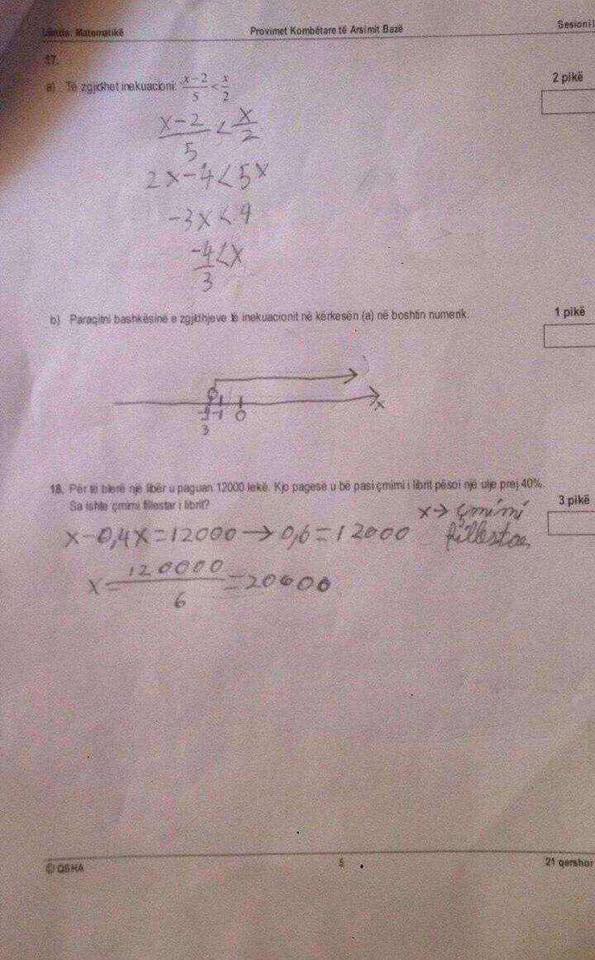 Lënda: Matematikë Provimet Kombëtare të Arsimit Bazë Sesioni I
17.
a) Të zgjidhet inekuacioni: x-2/5 < x/2 2 pikë
x-2/5 < x/2
2x-4<5x
-3x<4
-4/3<x
b) Paraqitni bashkësinë e zgjidhjeve të inekuacionit në kërkesën (a) në boshtin numerik. 1 pikë
-4/3 -1 0 x
18. Për të blerë një libër u paguan 12000 lekë. Kjo pagesë u bë pasi çmimi i librit pësoi një ulje prej 40%.
Sa ishte çmimi fillestar i librit? 3 pikë
x-0,4x=12000→0,6=12000 x→çmimi
fillestar
x=120000/6=20000
© QSHA 5 21 qershor